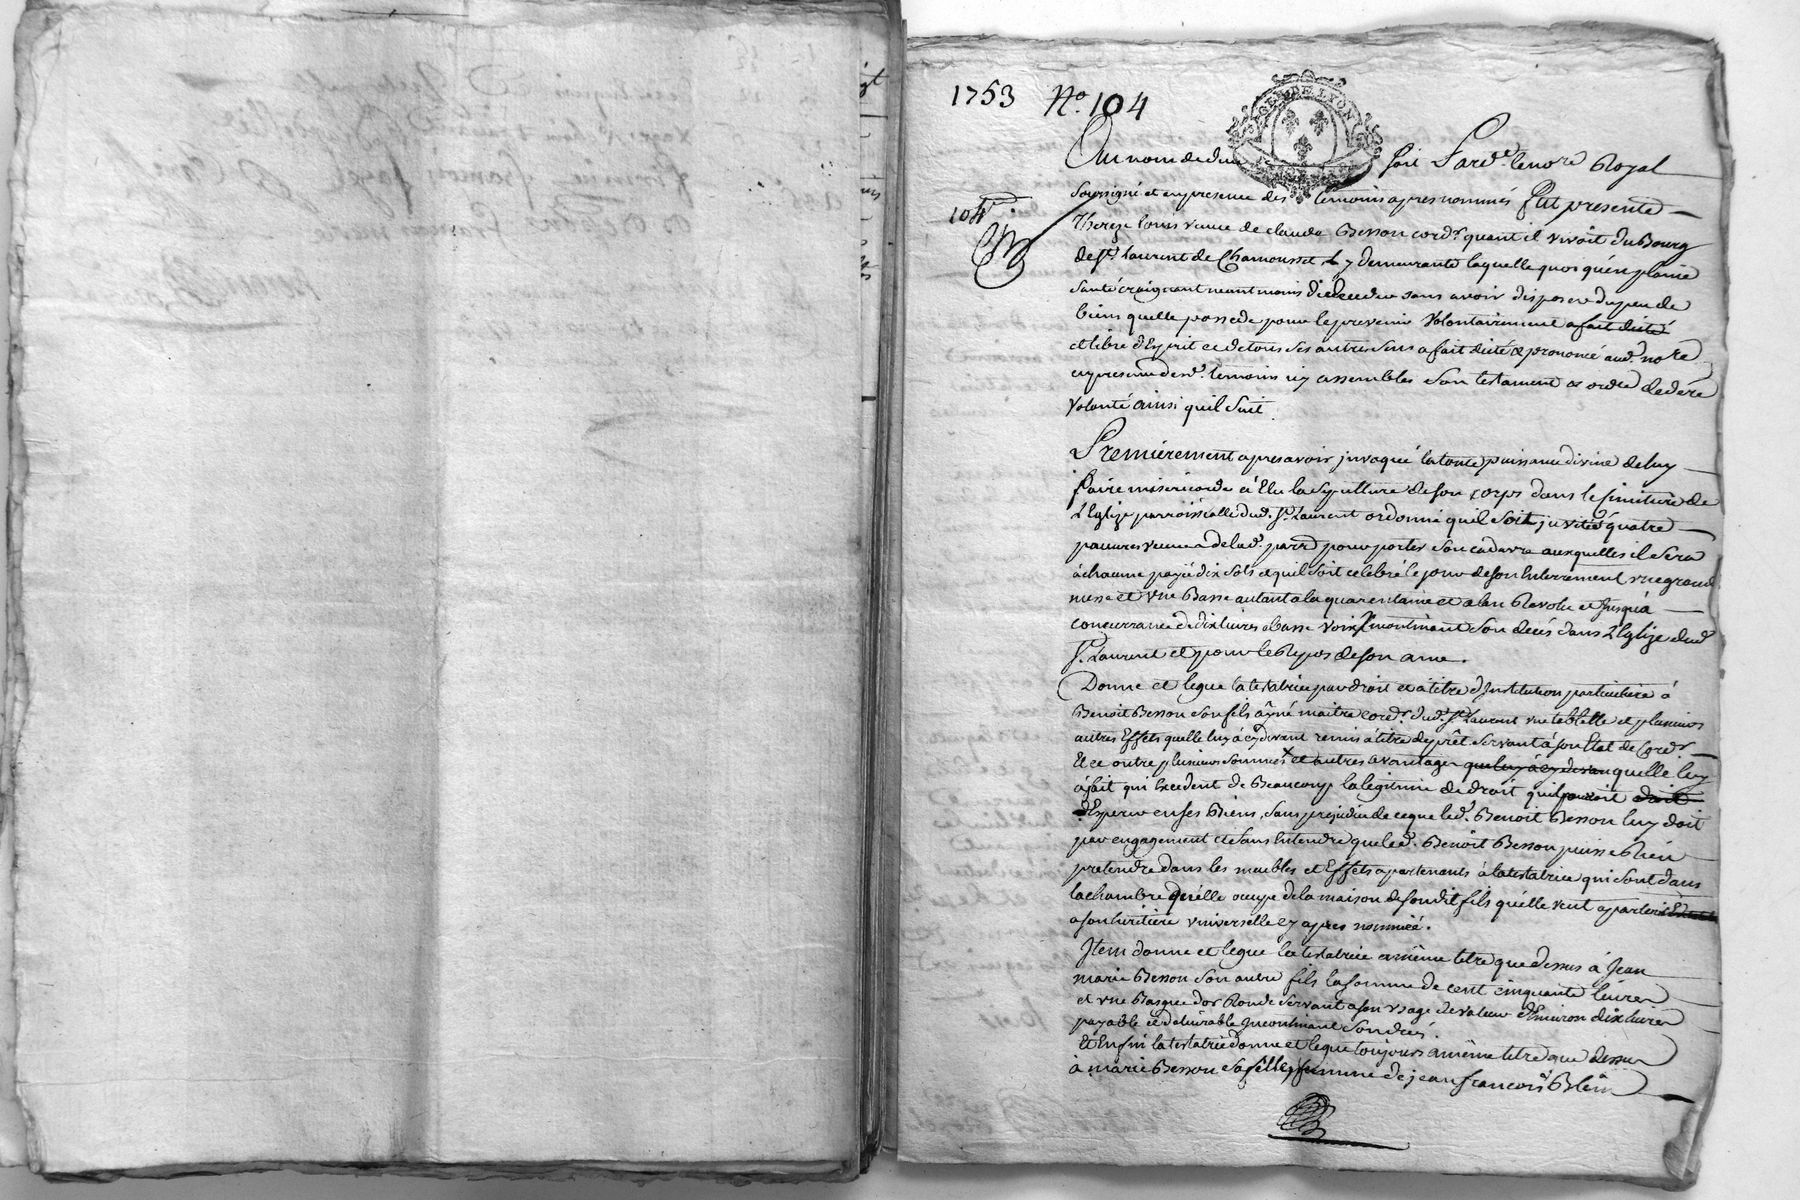 1753 No. 104
GEN. DE LYON
Au nom de dieu soit Pardt. le nore Royal
104e.
Soussigné et en presence des temoins apres nommés Fut presente
Thereze Louis veuve de claude Besson cordr. quant il vivoit du Bourg
de St. Laurent de Chamousset y demeurante laquelle quoi qu'en pleine
santé craignant neantmoins de deceder sans avoir disposer du peu de
biens quelle possede pour le prevenir volontairement a fait dicté
et libre d'Esprit et de tous ses autres sens a fait dicté & prononcé audt. nore
en presence desd. temoins icy assembles son testament et ordre de dere
volonté ainsi quil suit.
Premièrement apres avoir invoqué la toute puissance divine de luy
faire misericorde a Elu la sepulture de son corps dans le simitiere de
L'Eglize parroissialle dud. St. Laurent ordonné quil soit invités quatre
pauvres veuves de lad. parr. pour porter son cadavre auxquelles il sera
a chacune payé dix sols et quil soit celebré le jour de son Enterrement une grand
messe et une Basse autant a la quarentaine et a l'an Revolu et jusqu'à
concurrance de dix livres a basse voix incontinant son decés dans L'Eglize dud.
St. Laurent et pour le Repos de son ame.
Donne et legue la testatrice par droit et a titre d'Institution particuliere à
Benoit Besson son fils ayné maitre cordr. dud. St. Laurent une tablette et plusieurs
autres Effets quelle luy à cy devant remis à titre de prêt servant à son Etat de Cordr.
Et ce outre plusieurs sommes x et autres avantages que luy à cy devant quelle luy
à fait qui Excedent de Beaucoup la legitime de droit quil pouvoit droit
d'Esperer en ses Biens, sans prejudice de ce que led. Benoit Besson luy doit
par engagement et sans Entendre que led. Benoit Besson puisse Rien
pretendre dans les meubles et Effets apartenants à la testatrice qui sont dans
la chambre qu'elle occupe de la maison de son dit fils qu'elle veut apartenir
a son heritiere universelle cy apres nommée.
Item donne et legue la testatrice a même titre que dessus à Jean
marie Besson son autre fils la somme de cent cinquante livres
et une Basgue d'or Ronde servant a son usage de valeur d'Environ dix livres
payable et delivrable Incontinant son decés.
Et Enfin la testatrice donne et legue toujours a même titre que dessus
à marie Besson sa fille femme de jean françois Blein